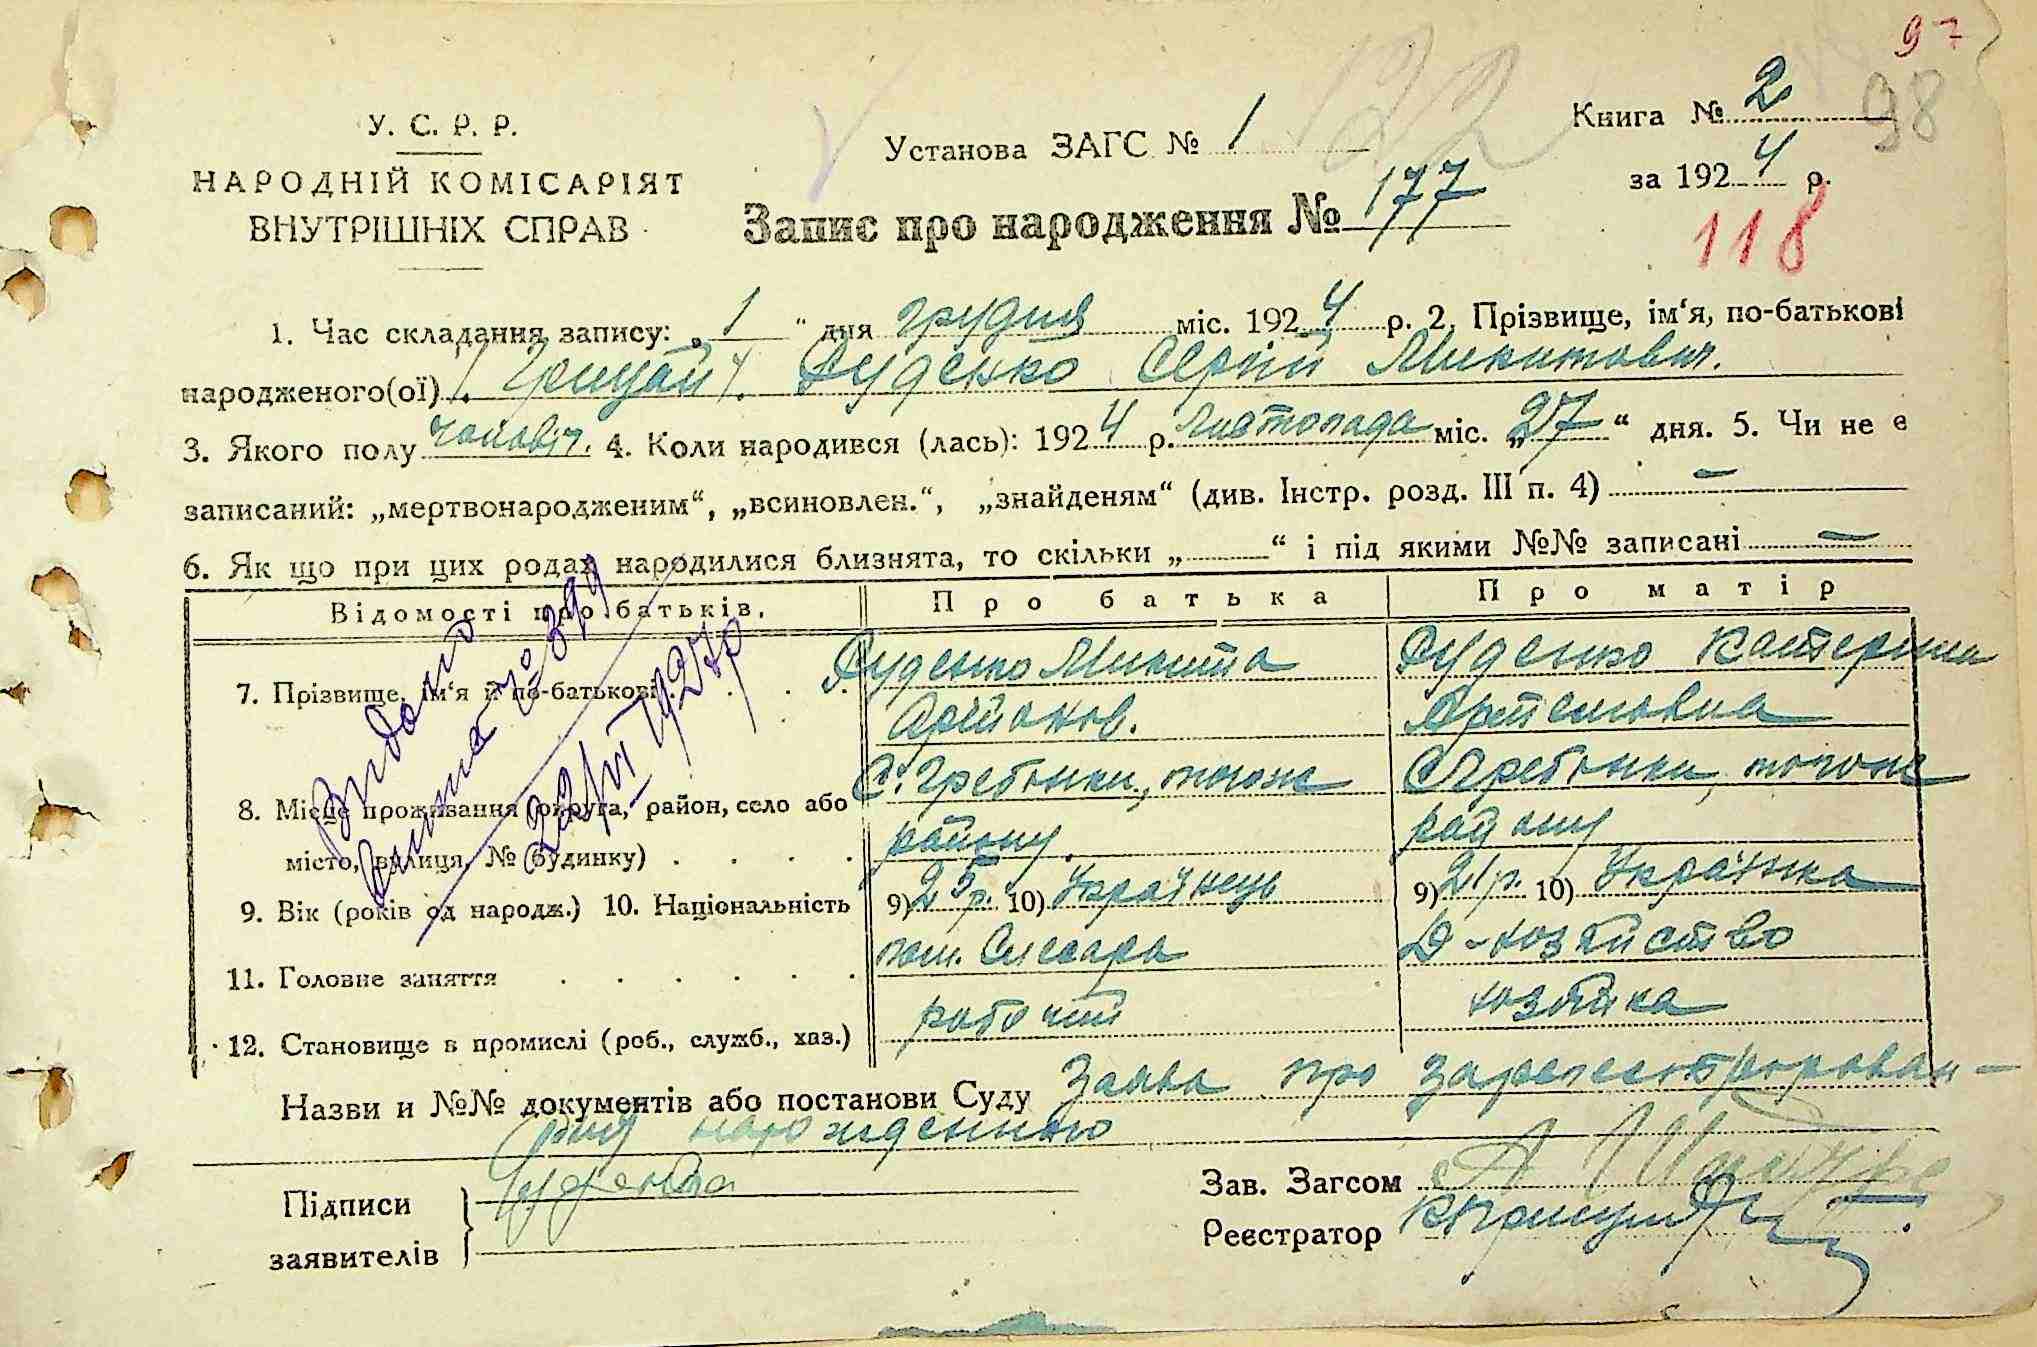 97
98
122
У. С. Р. Р.
НАРОДНІЙ КОМІСАРІЯТ
ВНУТРІШНІХ СПРАВ
Установа ЗАГС № 1
Книга № 2
за 1924 р.
Запис про народження № 177
118
1. Час складання запису: „1“ дня грудня міс. 1924 р. 2. Прізвище, ім‘я, по-батькові
народженого(ої) Руденко Сергій Микитович.
3. Якого полу чоловіч. 4. Коли народився (лась): 1924 р. Листопада міс. „27“ дня. 5. Чи не є
записаний: „мертвонародженим“, „всиновлен.“, „знайденям“ (див. Інстр. розд. III п. 4) —
6. Як що при цих родах народилися близнята, то скільки „ “ і під якими №№ записані —
Відомості про батьків. Про батька Про матір
7. Прізвище, ім‘я й по-батькові . . . Руденко Микита Руденко Катерина
Артемовна
8. Місце проживання (округа, район, село або С. Гребінки, того ж С. Гребінки, того ж
місто, вулиця, № будинку) . . . . району. району
9. Вік (років од народж.) 10. Національність 9) 25 р. 10) Українець 9) 21 р. 10) Українка
11. Головне заняття . . . . . . пом. Слесаря Д-хозяйство
12. Становище в промислі (роб., служб., хаз.) рабочий хозяйка
Видано
виписка № 399
22/VI 1927 р
Назви и №№ документів або постанови Суду Заява про
Підписи
заявителів
Зав. Загсом
Реєстратор